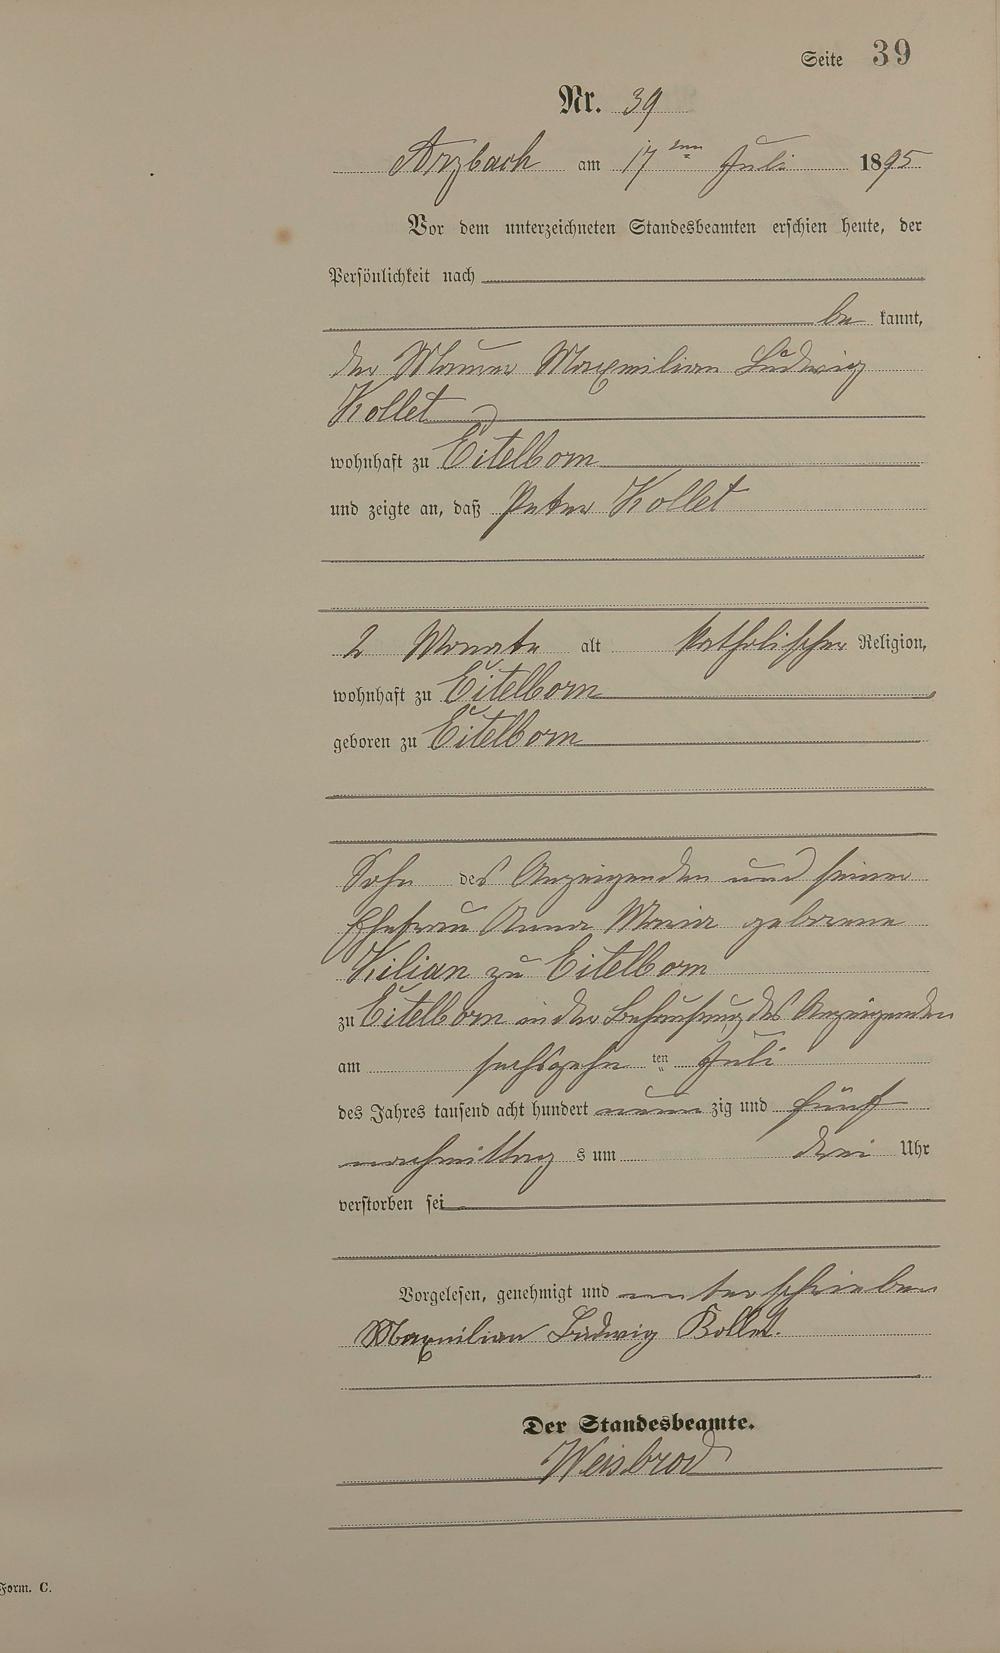 Seite 39
Nr. 39
Arzbach am 17ten Juli 1895
Vor dem unterzeichneten Standesbeamten erschien heute, der
Persönlichkeit nach
be kannt,
der Maurer Maxmilian Ludwig
Kollet
wohnhaft zu Eitelborn
und zeigte an, daß Peter Kollet
2 Monate alt katholischer Religion,
wohnhaft zu Eitelborn
geboren zu Eitelborn
Sohn des Anzeigenden und seiner
Ehefrau Anna Maria geborene
Kilian zu Eitelborn
zu Eitelborn in der Behausung des Anzeigenden
am sechszehn ten Juli
des Jahres tausend acht hundert neun zig und fünf
nachmittag s um drei Uhr
verstorben sei
Vorgelesen, genehmigt und unterschrieben
Maxmilian Ludwig Kollet.
Der Standesbeamte.
Weisbrod
Form. C.